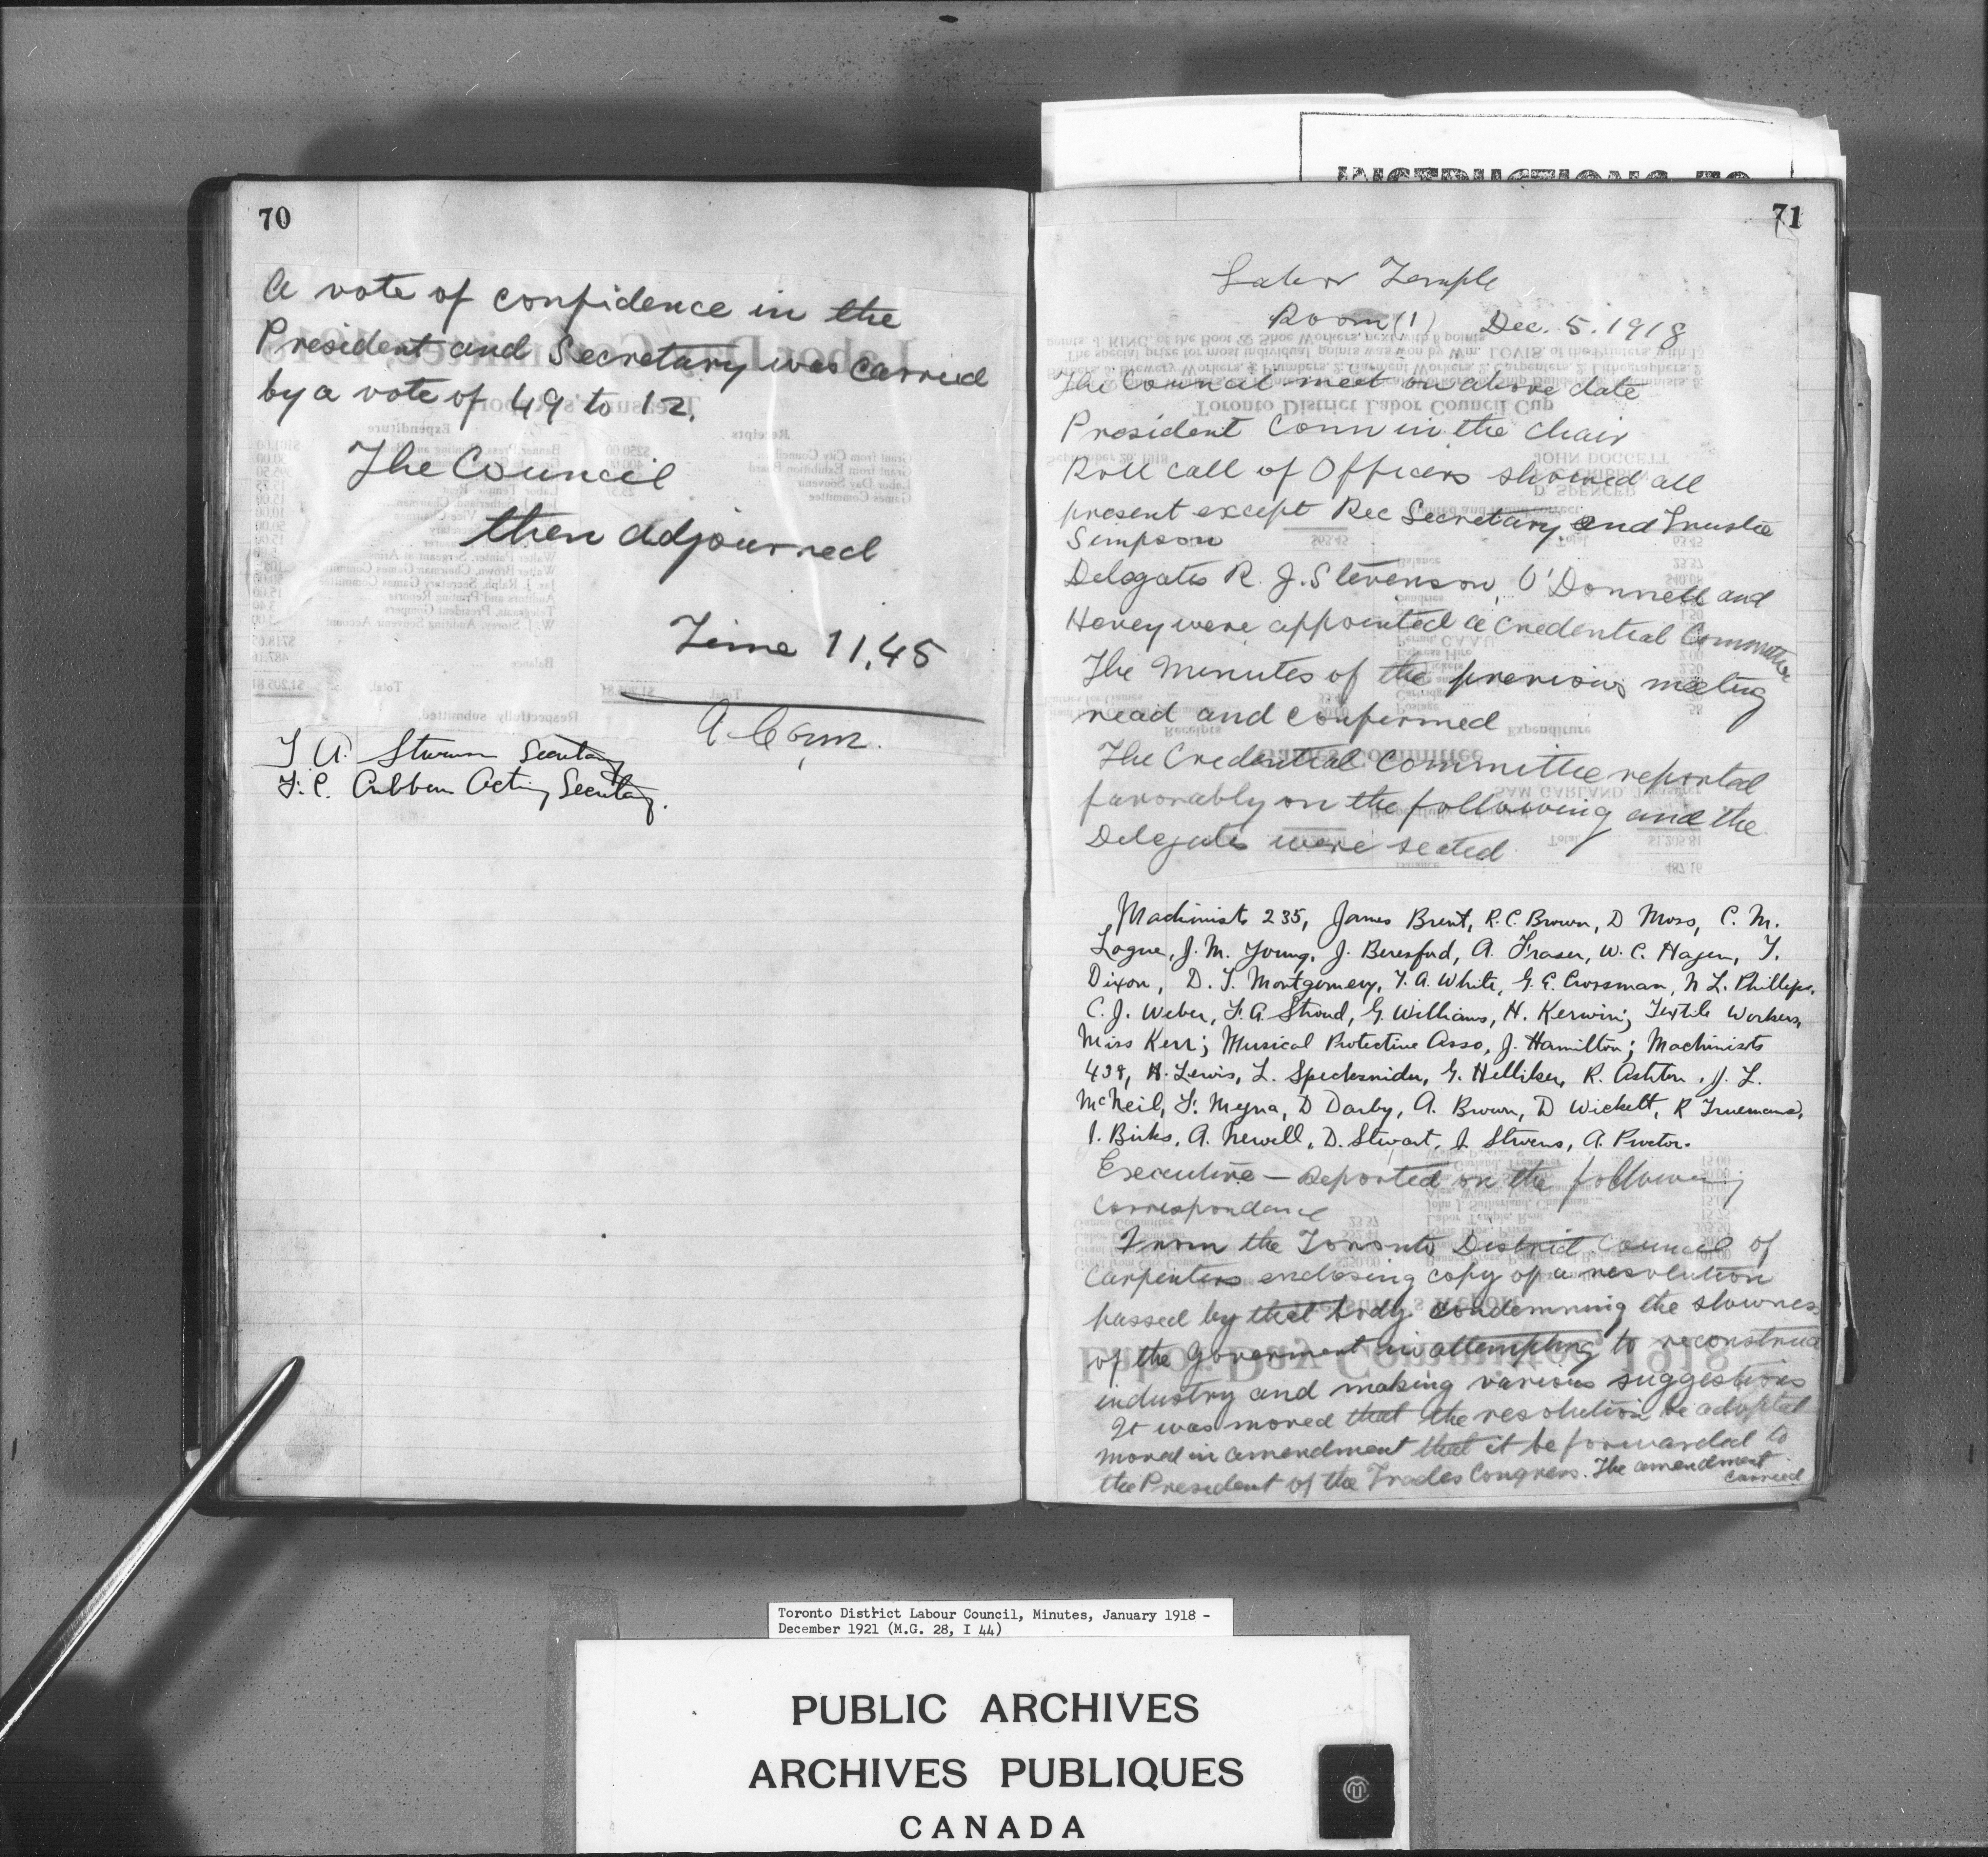 70
A vote of confidence in the
President and Secretary was carried
by a vote of 49 to 12.
The Council
then adjourned
Time 11,45
A. Conn.
T. A. Stevenson Secretary
F. C. Cribben Acting Secretary.
INSTRUCTIONS TO
71
Labor Temple
Room (1) Dec. 5. 1918
The Council meet on above date
President Conn in the chair
Roll call of Officers showed all
present except Rec Secretary and Trustee
Simpson
Delegates R. J. Stevenson, O'Donnell and
Hevey were appointed a credential Committee
The minutes of the previous meeting
read and confirmed
The Credential Committee reported
favorably on the following and the
Delegates were seated
Machinists 235, James Brent, R. C. Brown, D Moss, C. M.
Logue, J. M. Young, J. Beresford, A. Fraser, W. C. Hagen, T.
Dixon, D. T. Montgomery, T. A. White, G. E. Crossman, N L. Phillips,
C. J. Weber, F. A. Stroud, G. Williams, H. Kerwin; Textile Workers,
Miss Kerr; Musical Protective Asso, J. Hamilton; Machinists
438, H. Lewis, L. Specksnider, G. Helliker, R. Ashton, J. L.
McNeil, F. Meyna, D Darby, A. Brown, D Wickett, R Trueman,
J. Birks, A. Newell, D. Stewart, J. Stevens, A. Proctor.
Executive — Reported on the following
correspondance
From the Toronto District Council of
Carpenters enclosing copy of a resolution
passed by that body condemning the slowness
of the Goverment in attempting to reconstruct
industry and making various suggestions
It was moved that the resolution be adopted
moved in amendment that it be forwarded to
the President of the Trades Congress. The amendment
carried
Toronto District Labour Council, Minutes, January 1918 -
December 1921 (M.G. 28, I 44)
PUBLIC ARCHIVES
ARCHIVES PUBLIQUES
CANADA